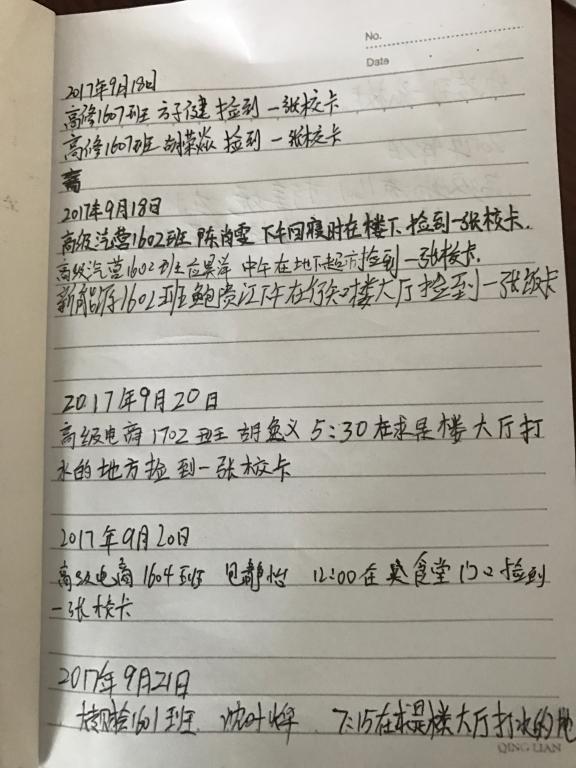 No.
Date
2017年9月18日
高修1607班 方子健 捡到一张校卡
高修1607班 胡荣焱 捡到一张校卡
2017年9月18日
高级汽营1602班 陈尚雯 下午回寝时在楼下捡到一张校卡.
高级汽营1602班 应昊洋 中午在地下超市捡到一张校卡.
新能源1602班鲍贵江下午在行知楼大厅捡到一张饭卡
2017年9月20日
高级电商1702班 胡逸义 5:30在求是楼大厅打
水的地方捡到一张校卡
2017年9月20日
高级电商1604班 静怡 12:00在食堂门口捡到
一张校卡
2017年9月21日
检1601班. 沈叶 7:15在求是楼大厅打水的地
QING LIAN